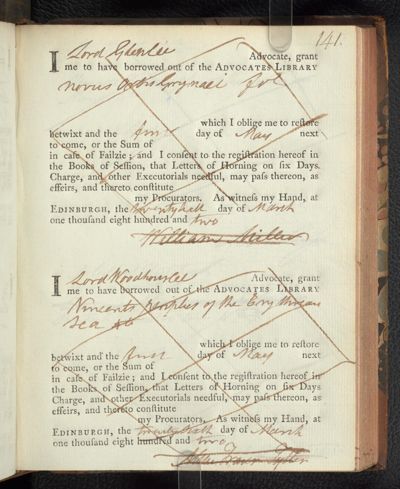 141.
I Lord Glenlee Advocate, grant
me to have borrowed out of the ADVOCATES LIBRARY
novus Orbis Grynaei fol
which I oblige me to reſtore
betwixt and the firſt day of May next
to come, or the Sum of
in caſe of Failzie; and I conſent to the regiſtration hereof in
the Books of Seſſion, that Letters of Horning on ſix Days
Charge, and other Executorials needful, may paſs thereon, as
effeirs, and thereto conſtitute
my Procurators. As witneſs my Hand, at
EDINBURGH, the day of March
one thouſand eight hundred and two
William Miller
I Lord Woodhouselee Advocate, grant
me to have borrowed out of the ADVOCATES LIBRARY
Vincents periplus of the Erythrean
Sea 4to
which I oblige me to reſtore
betwixt and the firſt day of May next
to come, or the Sum of
in caſe of Failzie; and I conſent to the regiſtration hereof in
the Books of Seſſion, that Letters of Horning on ſix Days
Charge, and other Executorials needful, may paſs thereon, as
effeirs, and thereto conſtitute
my Procurators. As witneſs my Hand, at
EDINBURGH, the day of March
one thouſand eight hundred and two
Fraser Tytler